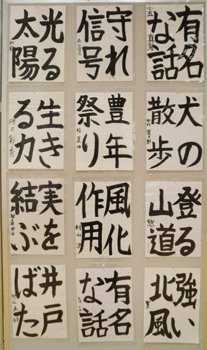 有名
な話
守れ
信号
光る
太陽
犬の
散歩
豊年
祭り
生き
る力
登る
山道
風化
作用
実を
結ぶ
強い
北風
有名
な話
井戸
ばた